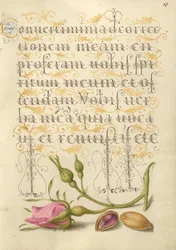 onuertimini ad correc
tionem meam en
proferam uobis spi
ritum meum et os
tendam Vobis uer
ba mea quia uoca
ui et renuistis